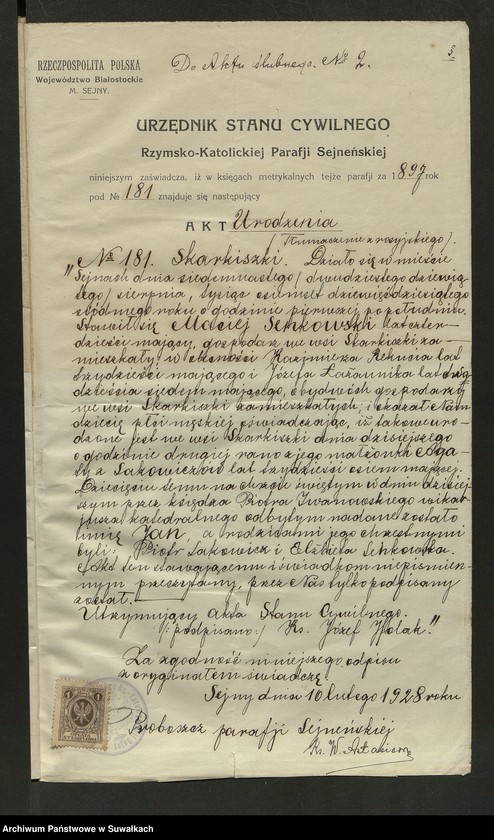 3
Do Aktu ślubnego. № 2.
RZECZPOSPOLITA POLSKA
Województwo Białostockie
M. SEJNY.
URZĘDNIK STANU CYWILNEGO
Rzymsko-Katolickiej Parafji Sejneńskiej
niniejszym zaświadcza, iż w księgach metrykalnych tejże parafji za 1897 rok
pod № 181 znajduje się następujący
AKT Urodzenia
/Tłumaczenie z rosyjskiego/.
"№ 181. Skarkiszki. Działo się w mieście
Sejnach dnia siedemnastego/dwudziestego dziewią-
tego/sierpnia, tysiąc osiemset dziewięćdziesiątego
siódmego roku o godzinie pierwszej po południu.
Stawił się Maciej Senkowski lat czter-
dzieści mający, gospodarz we wsi Skarkiszki za-
mieszkały, w obecności Kazimierza Rekucia lat
trzydzieści mającego i Józefa Łazaunika lat dwa-
dzieścia siedem mającego, obydwóch gospodarzy
we wsi Skarkiszki zamieszkałych, i okazał Nam
dziecię płci męskiej oświadczając, iż takowe uro-
dzone jest we wsi Skarkiszki dnia dzisiejszego
o godzinie drugiej rano z jego małżonki Aga-
ty z Sakowiczów lat trzydzieści osiem mającej.
Dziecięciu temu na chrzcie świętym w dniu dzisiej-
szym przez księdza Piotra Iwanowskiego wikar-
jusza katedralnego odbytym nadane zostało
imię Jan, a rodzicami jego chrzestnymi
byli: Piotr Sakowicz i Elżbieta Senkowska.
Akt ten stawającemu i świadkom niepiśmien-
nym przeczytany, przez Nas tylko podpisany
został.
Utrzymujący Akta Stanu Cywilnego.
/:podpisano:/ Ks. Józef Polak."
Za zgodność niniejszego odpisu
z oryginałem świadczę.
Sejny dnia 10 lutego 1928 roku
Proboszcz parafji Sejneńskiej
Ks. W.
1 1
Archiwum Państwowe w Suwałkach